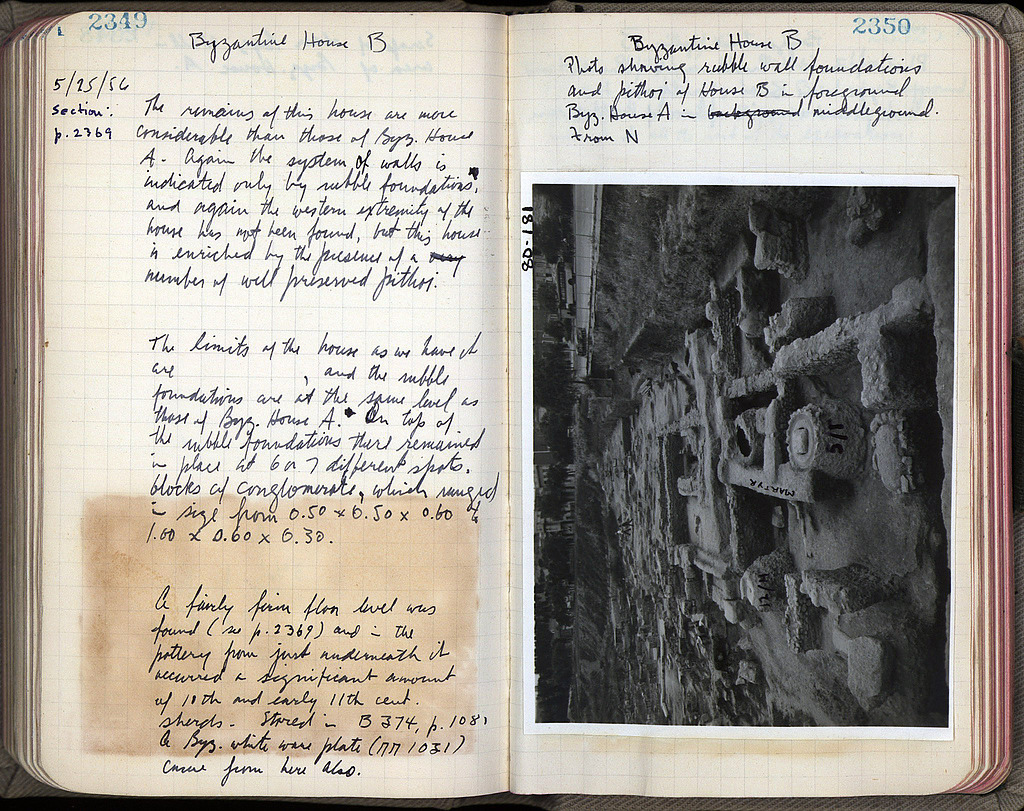 2349
Byzantine House B
5/25/56
Section:
p. 2369
The remains of this house are more
considerable than those of Byz. House
A. Again the system of walls is
indicated only by rubble foundations,
and again the western extremity of the
house has not been found, but this house
is enriched by the presence of a very
number of well preserved pithoi.
The limits of the house as we have it
are , and the rubble
foundations are at the same level as
those of Byz. House A. On top of
the rubble foundations there remained
in place at 6 or 7 different spots,
blocks of conglomerate, which ranged
in size from 0.50 x 0.50 x 0.60 to
1.00 x 0.60 x 0.30.
A fairly firm floor level was
found (see p. 2369) and in the
pottery from just underneath it
occurred a significant amount
of 10th and early 11th cent.
sherds. Stored in B 374, p. 1081
A Byz. white ware plate (ΠΠ 1031)
came from here also.
2350
Byzantine House B
Photo showing rubble wall foundations
and pithoi of House B in foreground
Byz. House A in background middleground.
From N
80-181
5/1
MARTYR
12/M